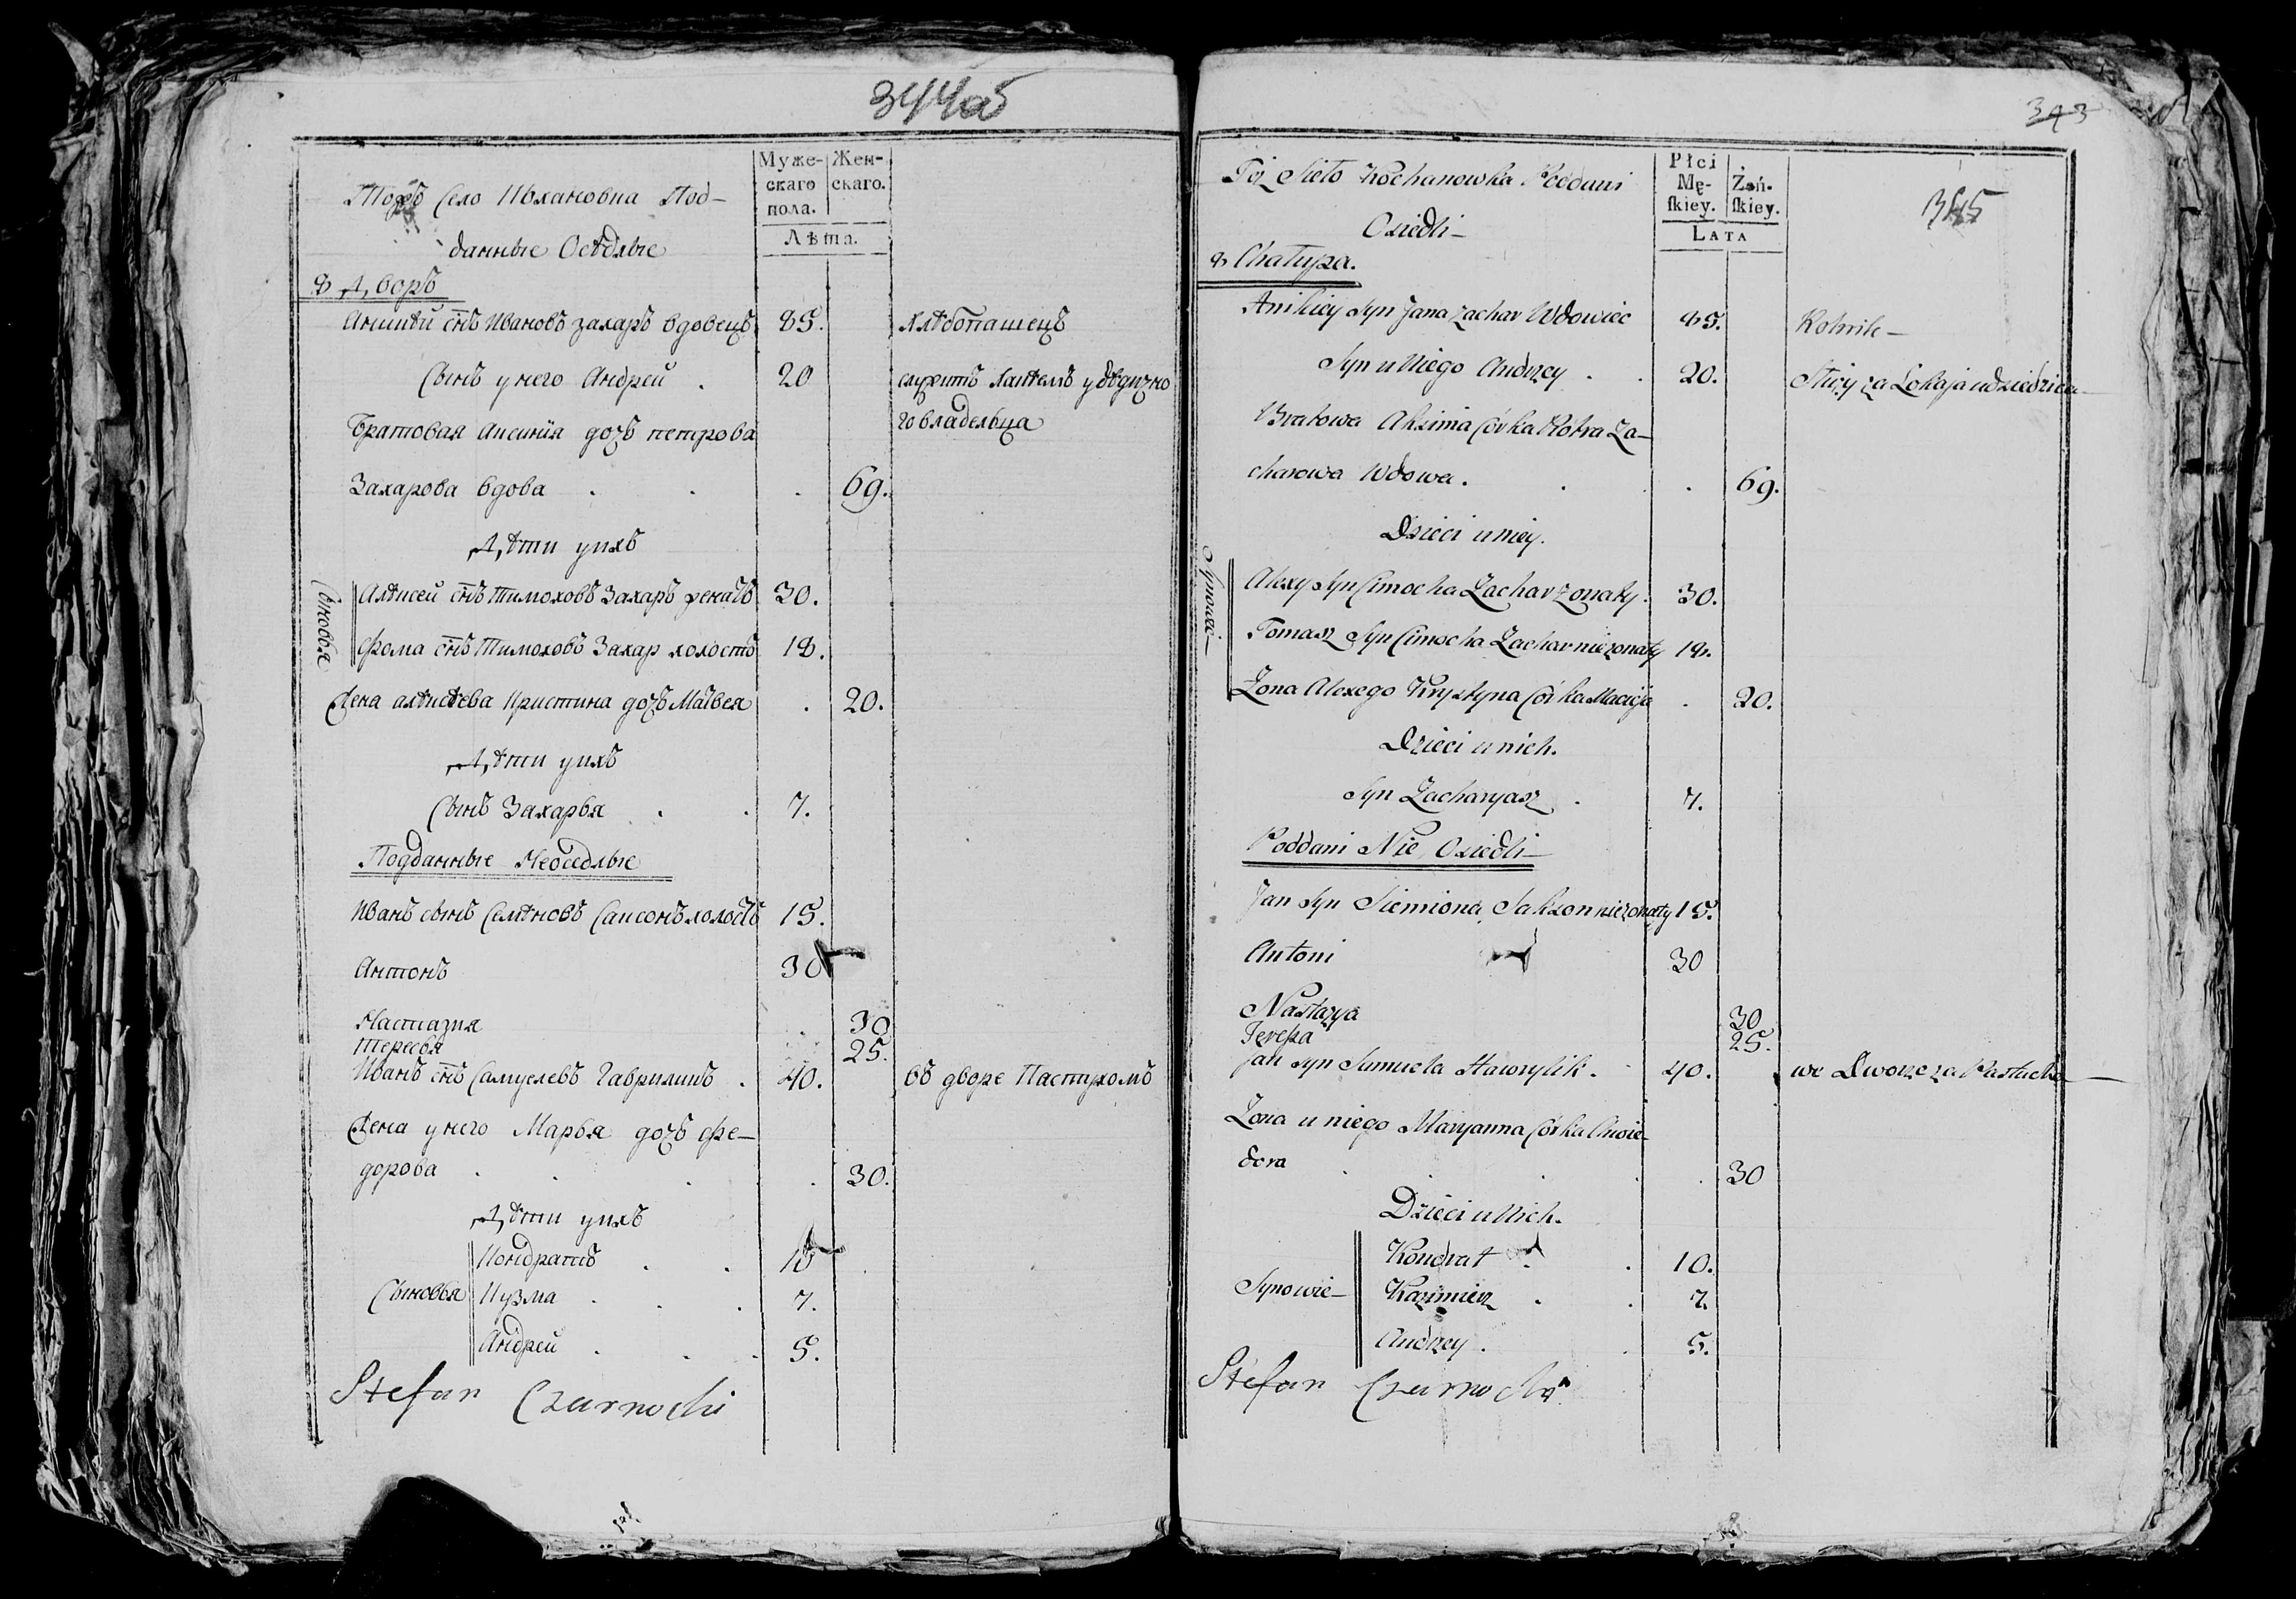 344об
Муже- Жен-
скаго скаго.
пола.
Лѣта.
Тожъ Село Кохановка Под-
данные Осѣдлые
8 Дворъ
Аникѣй сн҃ъ Ивановъ захаръ вдовецъ 85. хлѣбопашецъ
Сынъ у него Андрей . 20 служитъ лакѣемъ у дѣдизно
го владельца
Братовая Аксинія дочь петрова
Захарова вдова . . . 69.
Дѣти у нихъ
Сыновья
Алѣксей сн҃ъ Тимоховъ Захаръ женатъ 30.
Фома сн҃ъ Тимоховъ Захар холостъ 18.
Жена алѣксѣева Кристина дочь Матвея . 20.
Дѣти у нихъ
Сынъ Захарья . . 7.
Подданные Неоседлые
Иванъ сынъ Семѣновъ Саксонъ холостъ 15.
Антонъ 30
Настазия . 30
Тересья 25.
Иванъ сн҃ъ Самуелевъ Гавриликъ . 40. въ дворе Пастухомъ
Жена у него Марья дочь Фе-
дорова . . . . 30.
Дѣти у нихъ
Кондратъ . . 10
Сыновья Кузма . . . 7.
Андрей . . . 5.
Stefan Czarnocki
343
345
Płci
Mę- Żeń-
ſkiey. ſkiey.
LATA
Toż Sioło Kochanowka Poddani
Osiedli
8 Chałupa.
Anikiey Syn Jana Zachar Wdowiec 85. Rolnik
Syn u Niego Andrzey . . 20. Służy za Lokaja u dziedzica
Bratowa Aksinia Córka Piotra Za-
charowa Wdowa . . . 69.
Dzieci u niey.
Synowie
Alexy Syn Cimocha Zachar Żonaty . 30.
Tomasz Syn Cimocha Zachar nieżonaty 18.
Żona Alexego Krystyna Córka Macieja . 20.
Dzieci u nich.
Syn Zacharyasz . 7.
Poddani Nie Osiedli
Jan Syn Siemiona Sakson nieżonaty 15.
Antoni 30
Nastazya 30
Tereſza 25.
Jan Syn Samuela Hawrylik . 40. we Dworze za Pastucha
Żona u niego Maryanna Córka Chwie-
dora . . . . 30
Dzieci u Nich.
Kondrat . . 10.
Synowie Kazimierz . . 7.
Andrzey . . 5.
Stefan Czarnocki